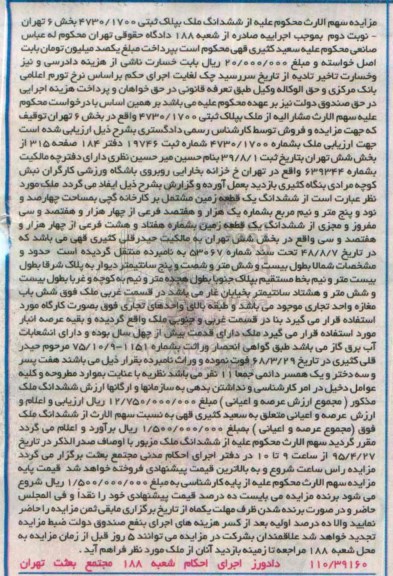 مزایده سهم الارث محکوم علیه از ششدانگ ملک بپلاک ثبتی ۴۷۳۰/۱۷۰۰ بخش ۶ تهران
- نوبت دوم بموجب اجراییه صادره از شعبه ۱۸۸ دادگاه حقوقی تهران محکوم له عباس
صانعی محکوم علیه سعید کثیری قهی محکوم است بپرداخت مبلغ یکصد میلیون تومان بابت
اصل خواسته و مبلغ ۲۰/۰۰۰/۰۰۰ ریال بابت خسارت ناشی از هزینه دادرسی و نیز
وخسارت تاخیر تادیه از تاریخ سررسید چک لغایت اجرای حکم براساس نرخ تورم اعلامی
بانک مرکزی و حق الوکاله وکیل طبق تعرفه قانونی در حق خواهان و پرداخت هزینه اجرایی
در حق صندوق دولت نیز بر عهده محکوم علیه می باشد بر همین اساس با درخواست محکوم
علیه سهم الارث مشارالیه از ملک بپلاک ثبتی ۴۷۳۰/۱۷۰۰ واقع در بخش ۶ تهران توقیف
که جهت مزایده و فروش توسط کارشناس رسمی دادگستری بشرح ذیل ارزیابی شده است
جهت ارزیابی ملک بشماره ۴۷۳۰/۱۷۰۰ شماره ثبت ۱۹۷۴۶ دفتر ۱۸۴ صفحه ۳۱۵ از
بخش شش تهران بتاریخ ثبت ۳۹/۸/۱ بنام حسین میر حسین نظری دارای دفترچه مالکیت
بشماره ۶۳۹۳۴۴ واقع در تهران خ خزانه بخارایی روبروی باشگاه ورزشی کارگران نبش
کوچه مرادی بنگاه کثیری بازدید بعمل آورده و گزارش بشرح ذیل ایفاد می گردد ملک مورد
نظر عبارت است از ششدانگ یک قطعه زمین مشتمل بر کارخانه گچی بمساحت چهارصد و
نود و پنج متر و نیم مربع بشماره یک هزار و هفتصد فرعی از چهار هزار و هفتصد و سی
مفروز و مجزی از ششدانگ یک قطعه زمین بشماره هفتاد و هشت فرعی از چهار هزار و
هفتصد و سی واقع در بخش شش تهران به مالکیت حیدرقلی کثیری قهی می باشد که
در تاریخ ۴۸/۸/۷ تحت سند شماره ۵۳۰۶۷ به نامبرده منتقل گردیده است حدود و
مشخصات شمالا بطول بیست و شش متر و شصت و پنج سانتیمتر دیوار به پلاک شرقا بطول
بیست متر و نیم بخط مستقیم بپلاک جنوبا بطول هجده متر و نیم به کوچه و غربا بطول بیست
و شش متر و هشتاد سانتیمتر بخیابان غار می باشد در قسمت غربی ملک فوق شش باب
مغازه واحد تجاری موجود می باشد و طبقه بالای واحدهای تجاری فوق بصورت کارگاه مورد
استفاده قرار می گیرد بنا در قسمت غربی و جنوبی ملک واقع گردیده و بقیه عرصه انبار
مورد استفاده قرار می گیرد ملک دارای قدمت بیش از چهل سال بوده و دارای انشعابات
آب برق گاز می باشد طبق گواهی انحصار وراثت بشماره ۱۱۵۱-۷۵/۱۰/۹ مرحوم حیدر
قلی کثیری در تاریخ ۶۸/۳/۲۹ فوت نموده و وراث نامبرده بقرار ذیل می باشند هفت پسر
و سه دختر و یک همسر دائمی جمعا ۱۱ نفر می باشد نظریه با عنایت بموارد مطروحه و کلیه
عوامل دخیل در امر کارشناسی و نداشتن بدهی به سازمانها و ارگانها ارزش ششدانگ ملک
مذکور ( مجموع ارزش عرصه و اعیانی ) مبلغ ۱۲/۷۵۰/۰۰۰/۰۰۰ ریال ارزیابی و اعلام و
ارزش عرصه و اعیانی متعلق به سعید کثیری قهی به نسبت سهم الارث از ششدانگ ملک
فوق (مجموع عرصه و اعیانی ) بمبلغ ۱/۵۰۰/۰۰۰/۰۰۰ ریال برآورد و اعلام می گردد
مقرر گردید سهم الارث محکوم علیه از ششدانگ ملک مزبور با اوصاف صدرالذکر در تاریخ
۹۵/۴/۲۷ از ساعت ۹ تا ۱۰ در دفتر اجرای احکام مدنی مجتمع بعثت برگزار می گردد
مزایده راس ساعت شروع و به بالاترین قیمت پیشنهادی فروخته خواهد شد قیمت پایه
مزایده سهم الارث محکوم علیه از پایه کارشناسی به مبلغ ۱/۵۰۰/۰۰۰/۰۰۰ ریال شروع
می شود برنده مزایده می بایست ده درصد قیمت پیشنهادی خود را نقدا و فی المجلس
حاضر و در صورت برنده شدن ظرف مهلت یکماه از تاریخ برگزاری مابقی ثمن مزایده را حاضر
نمایید والا ده درصد اولیه بعد از کسر هزینه های اجرای بنفع صندوق دولت ضبط مزایده
تجدید خواهد شد علاقمندان بشرکت در مزایده می توانند ۵ روز قبل از زمان مزایده به
محل شعبه ۱۸۸ مراجعه تا زمینه بازدید آنان از ملک مورد نظر فراهم آید .
۱۱۰/۳۹۱۶۰ دادورز اجرای احکام شعبه ۱۸۸ مجتمع بعثت تهران